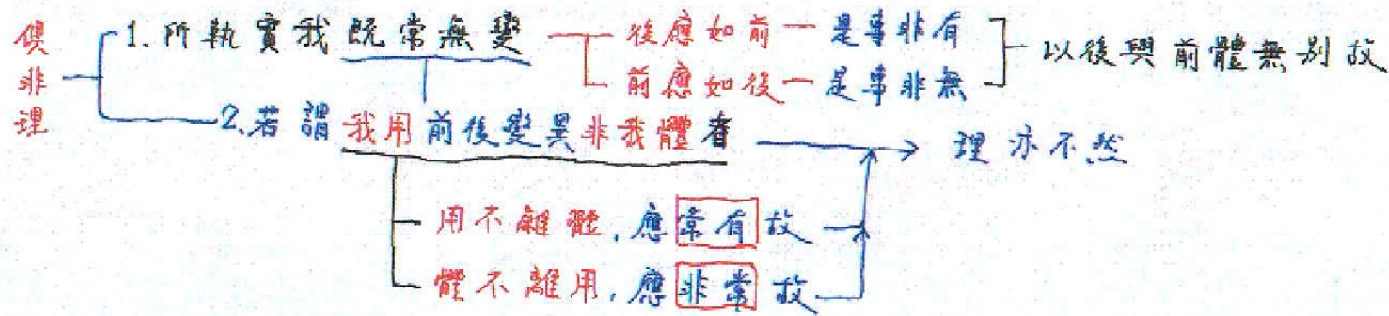 俱非理
1. 所執實我既常無變
後應如前一是事非有
前應如後一是事非無
以後與前體無別故
2. 若謂我用前後變異非我體者
理亦不然
用不離體,應常有故
體不離用,應非常故